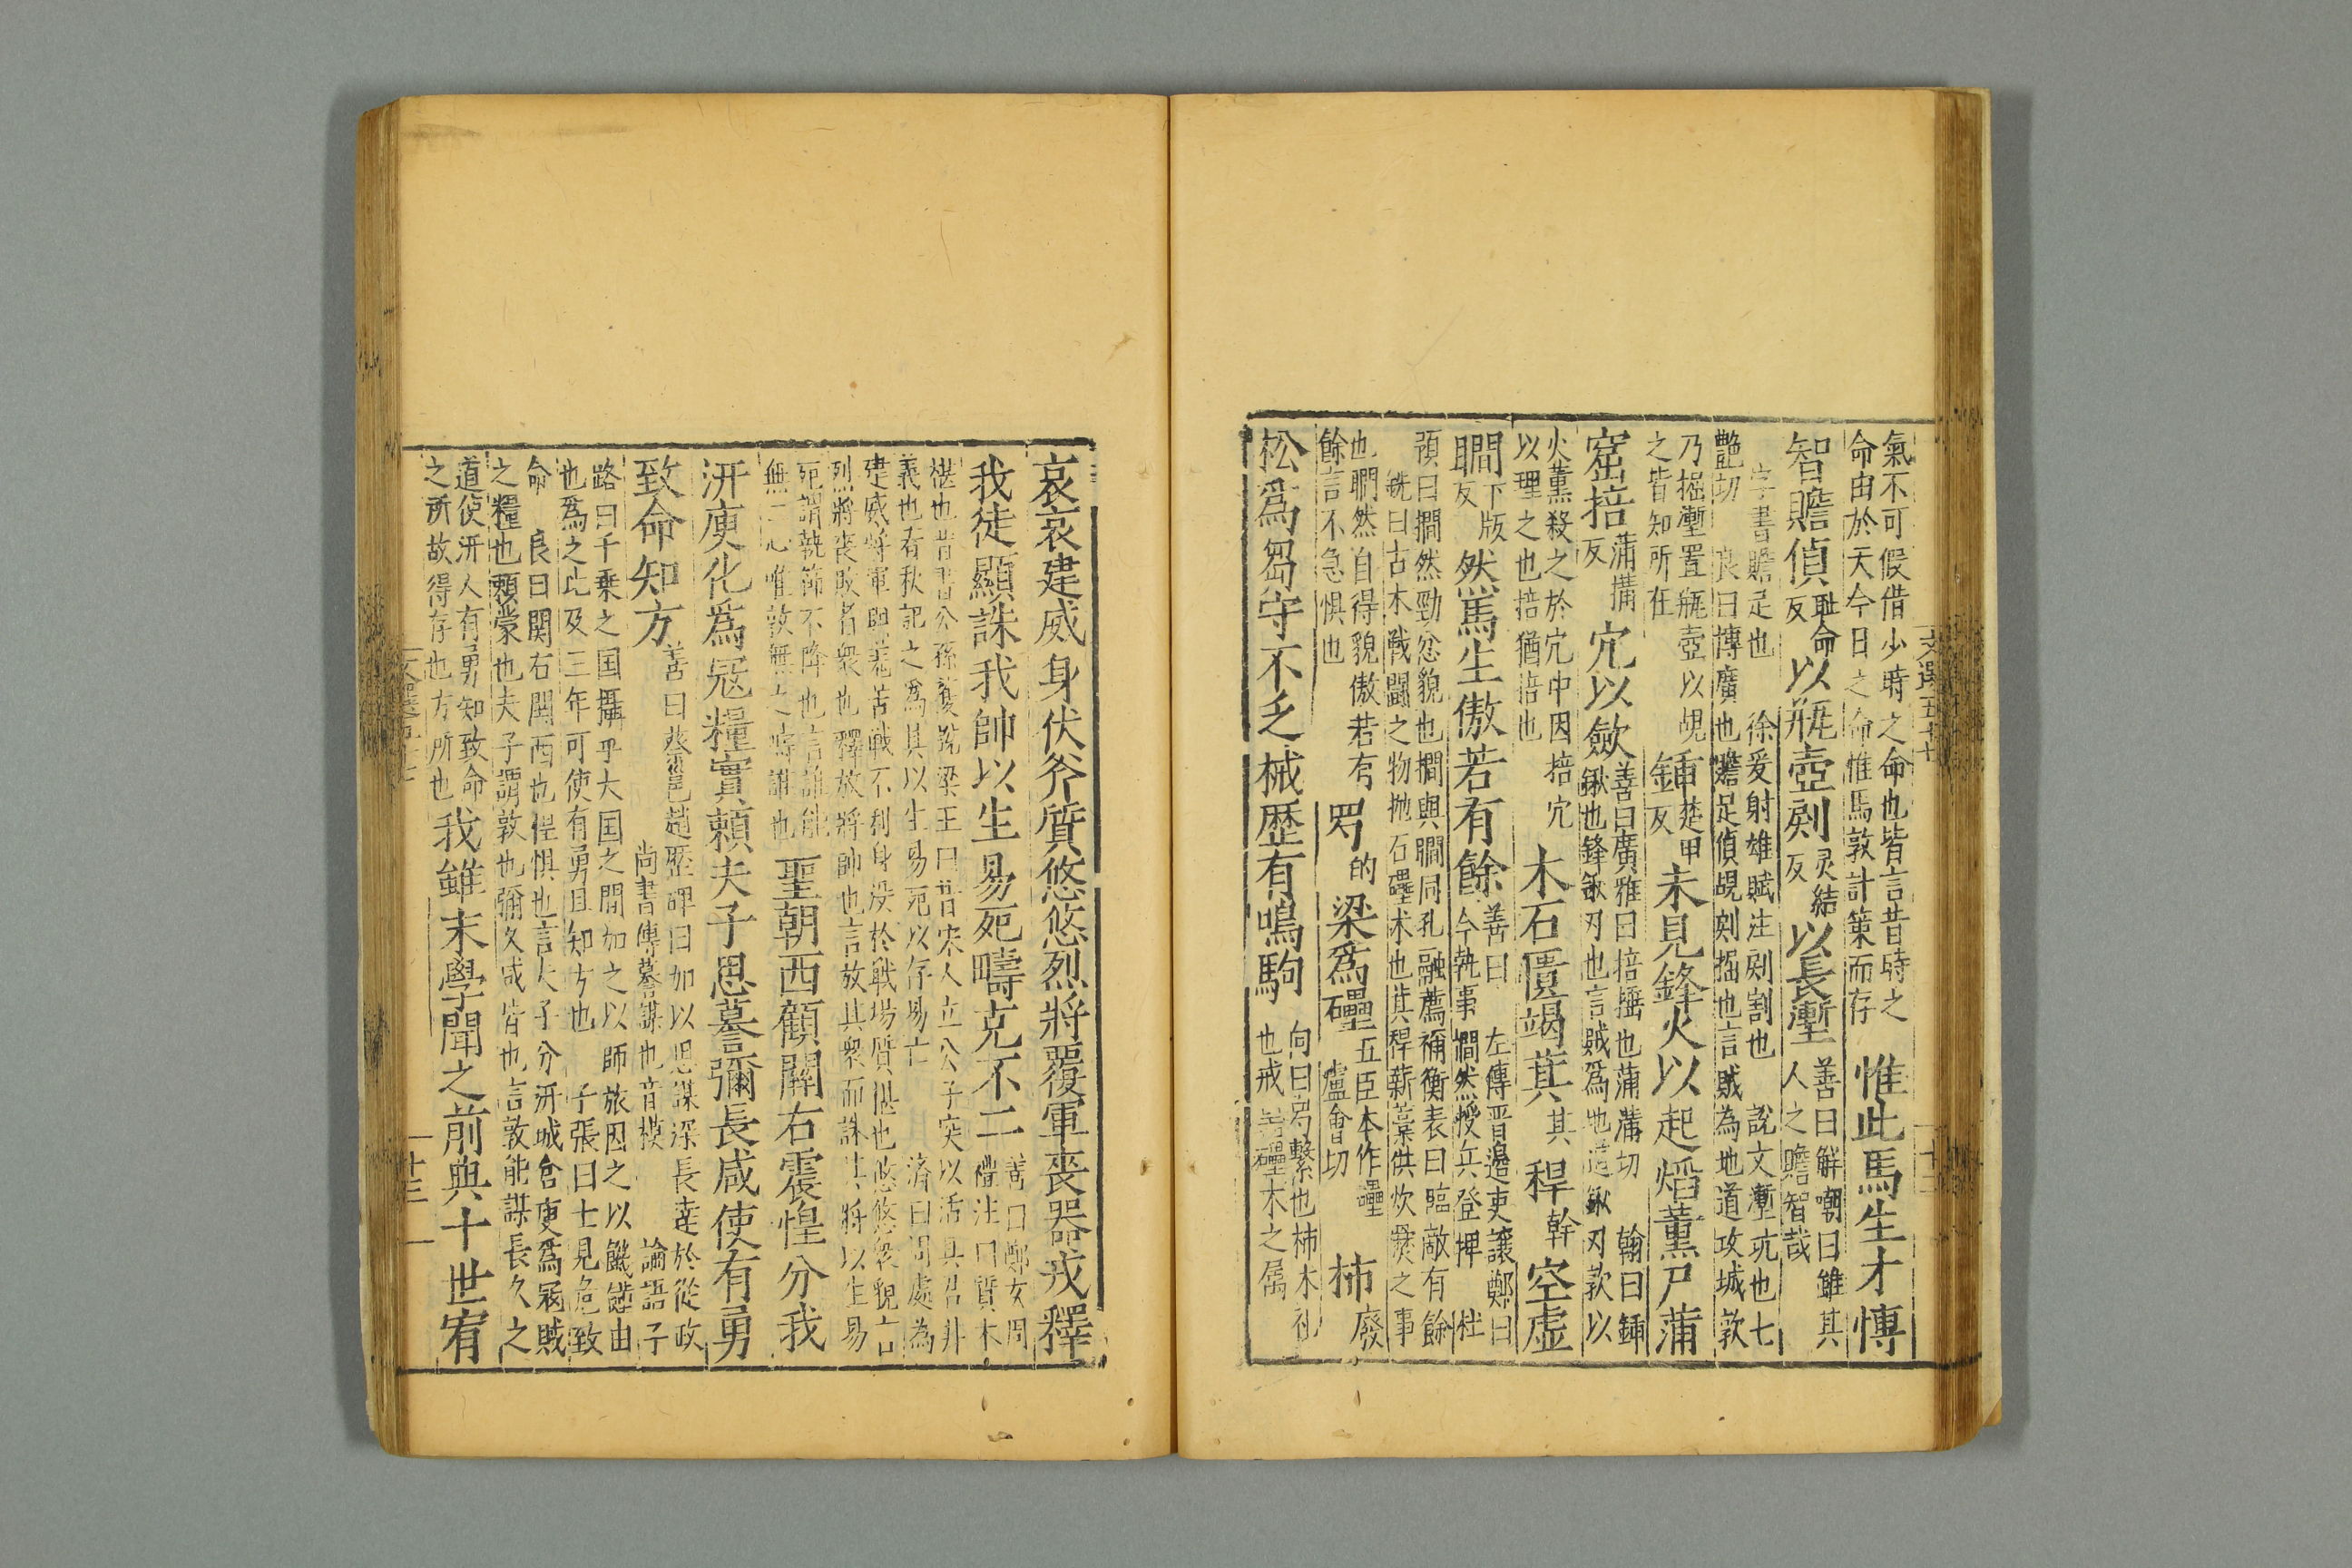 氣不可假借少時之命也皆言昔時之
命由於天今日之命惟馬敦計策而存
惟此馬生才博
智贍偵
恥命
反
以瓶壺剜
灵結
反
以長塹
善曰解嘲曰雖其
人之贍智哉
字書贍足也
徐爰射雄賦注剜割也
說文塹坑也七
艷切
良曰博廣也贍足偵覘剜搵也言賊為地道攻城敦
乃掘塹置瓶壺以覘
之皆知所在
鍤
楚甲
反
未見鋒火以起焰薰尸蒲
窑掊
蒲搆
反
宂以斂
善曰廣雅曰掊搥也蒲溝切
翰曰鍤
鍬也鋒鍬刃也言賊為地道鍬刃欵以
火薰殺之於宂中因掊宂
以理之也掊猶掊也
木石匱竭萁
其
稈
幹
空虚
瞷
下版
反
然馬生傲若有餘
善曰
左傳晋邉吏讓鄭曰
今執事撊然授兵登押
杜
預曰撊然勁忿貌也撊與瞷同孔融薦禰衡表曰臨敵有餘
銑曰古木戰鬪之物抛石礧木也萁稈薪藁供炊爨之事
也瞷然自得貌傲若有
餘言不急惧也
䍐
的
梁爲礧
五臣本作礨
盧會切
柿
廢
松爲芻守不乏械歷有鳴駒
向曰䍐繫也柿木札
也戒善礧木之属
文選五十七
十三
哀哀建威身伏斧質悠悠烈將覆軍喪器戎釋
我徒顯誅我帥以生易死疇克不二
善曰鄭女周
禮注曰質木
椹也昔晋公孫爰說梁王曰昔宋人立公子突以活其君非
義也春秋記之爲其以生易死以存易亡
濟曰周處為
建威將軍與羌苦戰不利身没於戰場質椹也悠悠衆貌言
烈將喪敗者衆也釋放將帥也言放其衆而誅其將以生易
死謂執節不降也言誰能
無二心唯敦無之疇誰也
聖朝西顧關右震惶分我
汧庾化爲冦糧實頼夫子思謩彌長咸使有勇
致命知方
善曰蔡邕趙歷碑曰加以思謀深長達於從政
尚書傳謩謀也音模
論語子
路曰千乗之国攝乎大国之間加之以師旅因之以饑饉由
也爲之比及三年可使有勇且知方也
子張曰士見危致
命
良曰関右関西也惶惧也言夫子分汧城倉庾爲冦賊
之糧也頼蒙也夫子謂敦也彌久咸皆也言敦能謀長久之
道使汧人有勇知致命
之所故得存也方所也
我雖末學聞之前典十世宥
十三